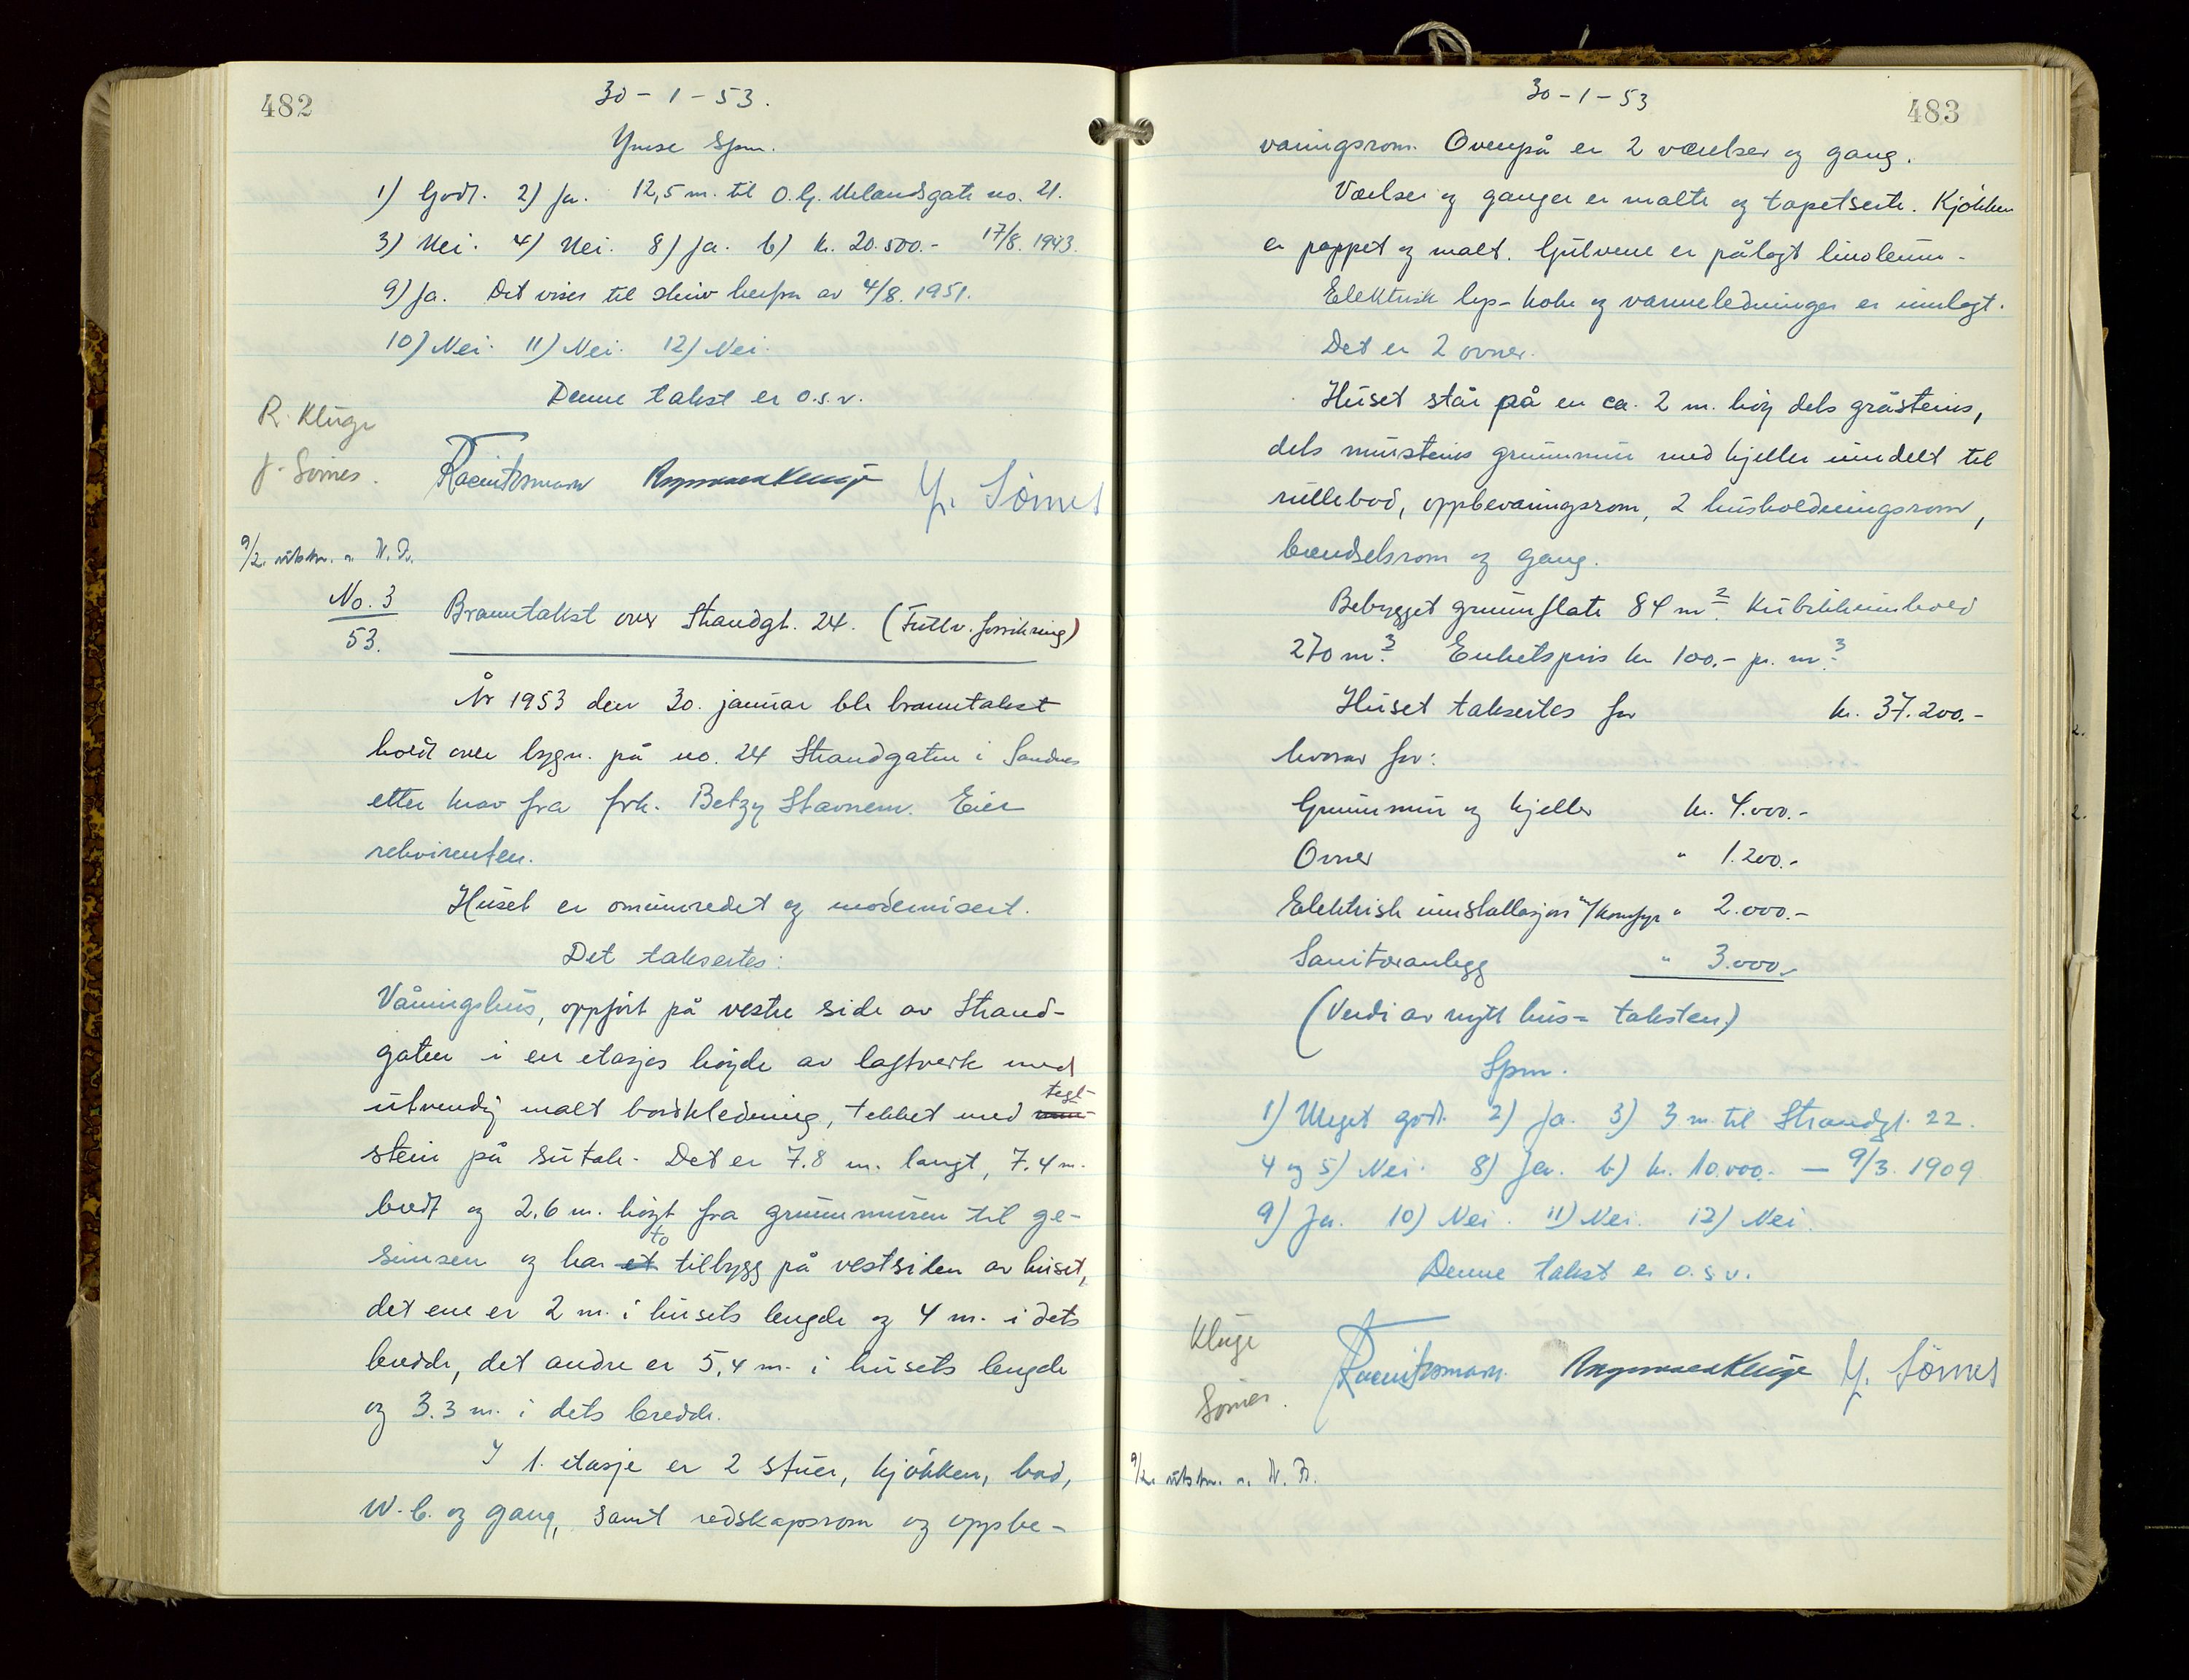 482
30-1-53.
Ymse Spm.
1) Godt. 2) Ja. 12,5 m. til O. G. Melandsgate no. 21.
3) Nei. 4) Nei. 8) Ja. b) kr. 20.500.- 17/8. 1943.
9) Ja. Det vises til skriv herfra av 4/8. 1951.
10) Nei. 11) Nei. 12) Nei.
Denne takst er o.s.v.
R. Kluge
J. Sørnes.
Rasmus Kluge J. Sörnes
9/2. utskr. n. N. Br.
No. 3
53.
Branntakst over Strandgt. 24. (Fullv. forsikring)
År 1953 den 30. januar ble branntakst
holdt over bygn. på no. 24 Strandgaten i Sandnes
etter krav fra frk. Betzy Stavnem. Eier
rekvirenten.
Huset er ominnredet og modernisert.
Det takseres:
Våningshus, oppfört på vestre side av Strand-
gaten i en etasjes höyde av laftverk med
utvendig malt bordkledning, tekket med tegl-
stein på sutak. Det er 7.8 m. langt, 7.4 m.
bredt og 2.6 m. höyt fra grunnmuren til ge-
simsen og har et to tilbygg på vestsiden av huset,
det ene er 2 m. i husets lengde og 4 m. i dets
bredde, det andre er 5.4 m. i husets lengde
og 3.3 m. i dets bredde.
I 1. etasje er 2 stuer, kjökken, bad,
W.C. og gang, samt redskapsrom og oppbe-
30-1-53
483
varingsrom. Ovenpå er 2 værelser og gang.
Værelser og ganger er malte og tapetserte. Kjökken
er pappet og malt. Gulvene er pålagt linoleum.
Elektrisk lys- koke og varmeledninger er innlagt.
Det er 2 ovner.
Huset står på en ca. 2 m. höy dels gråsteins,
dels mursteins grunnmur med kjeller inndelt til
rullebod, oppbevaringsrom, 2 husholdningsrom,
brendselsrom og gang.
Bebygget grunnflate 84 m². Kubikkinnhold
270 m³. Enhetspris kr 100.- pr. m³.
Huset takseres for kr. 37.200.-
hvorav for:
Grunnmur og kjeller kr. 4.000.-
Ovner " 1.200.-
Elektrisk innstallasjon m/komfyr " 2.000.-
Sanitæranlegg " 3.000.-
(Verdi av nytt hus = taksten)
Spm.
1) Meget godt. 2) Ja. 3) 3 m. til Strandgt. 22.
4 og 5) Nei. 8) Ja. b) kr. 10.000.- — 9/3. 1909
9) Ja. 10) Nei. 11) Nei. 12) Nei.
Denne takst er o.s.v.
Kluge
Sørnes.
Rasmus Kluge J. Sörnes
9/2. utskr. n. N. Br.